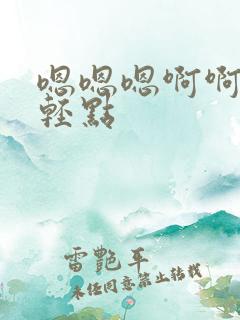 嗯嗯嗯啊啊
輕點
雷艷平
未经同意禁止转载